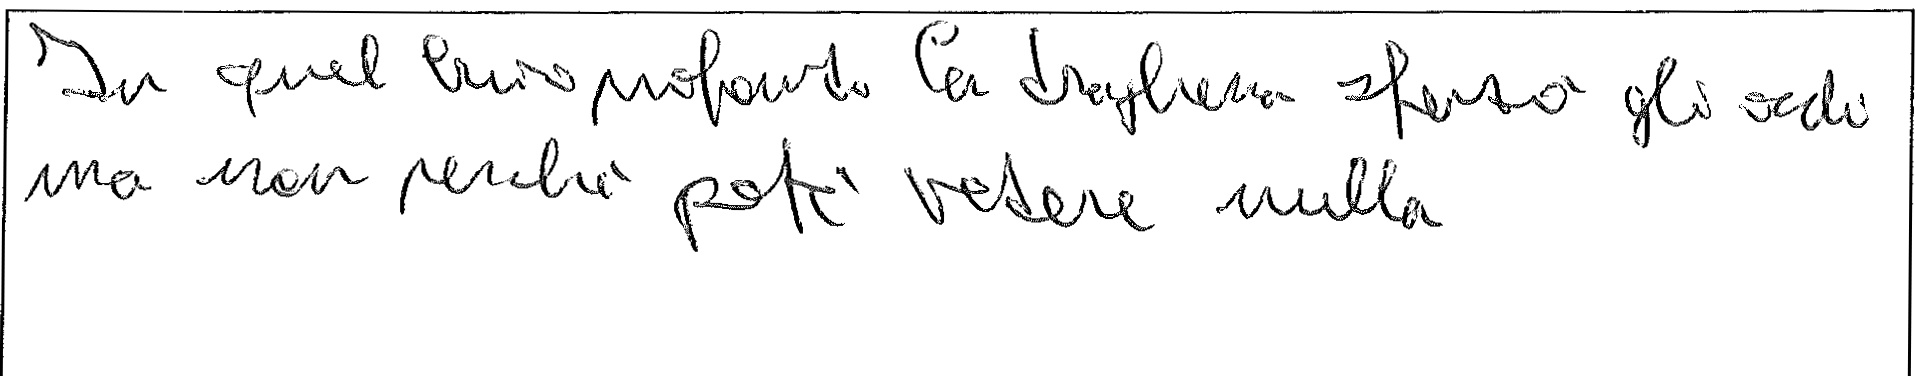 In quel buio profondo la draghessa gli occhi
ma non perché poté vedere nulla